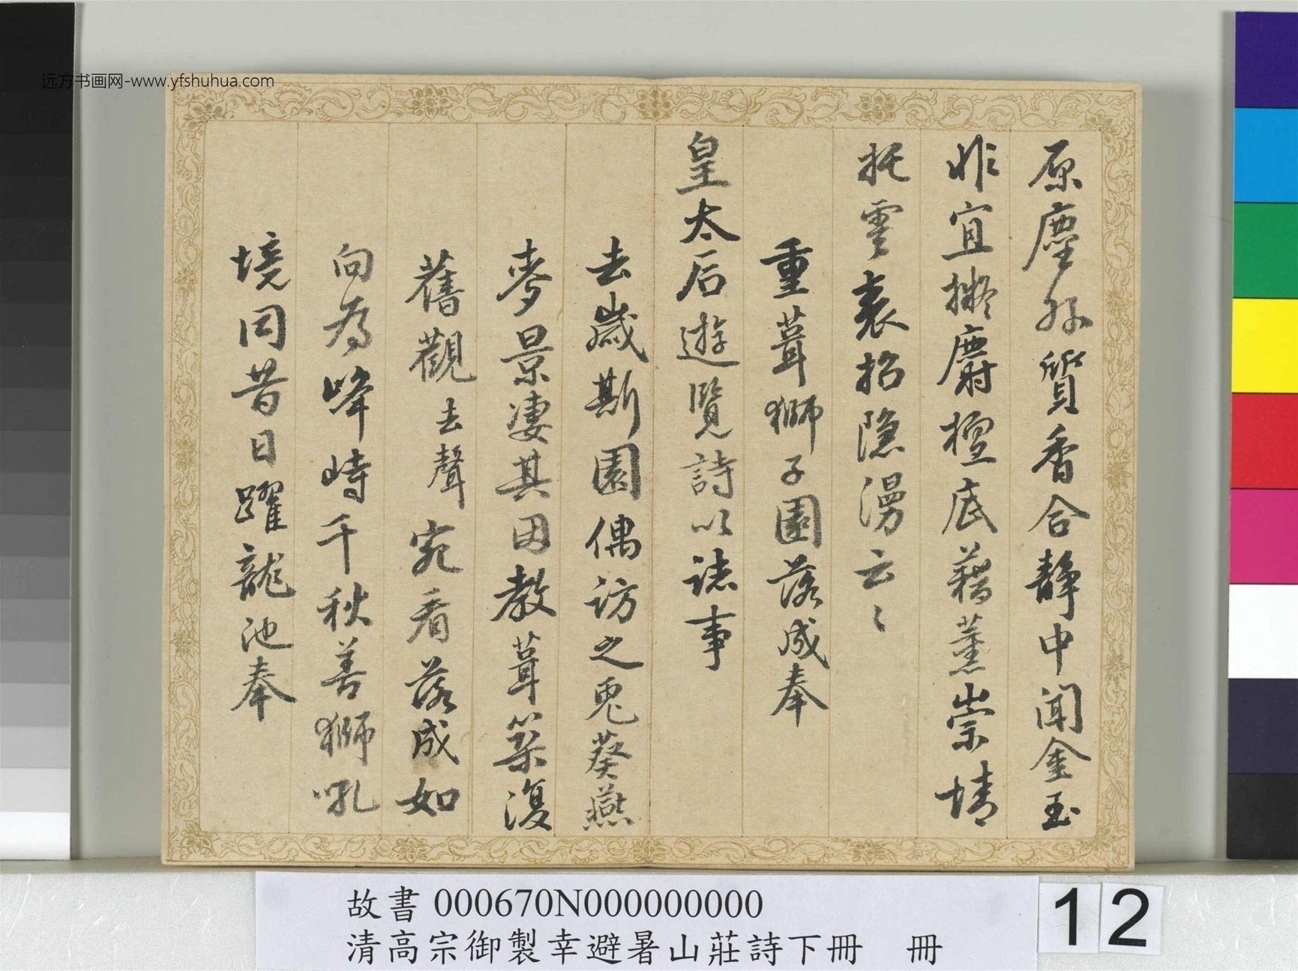 远方书画网-www.yfshuhua.com
原塵外質香合静中聞金玉
非宜擬麝檀底藉薰崇情
托雲表招隐漫云〻
重葺獅子園落成奉
皇太后遊覽詩以誌事
去歲斯園偶访之兎葵燕
麥景凄其因教葺築復
舊觀去聲宛看落成如
向為峰峙千秋善獅吼
境同昔日躍龍池奉
故書 000670N000000000
清高宗御製幸避暑山莊詩下冊 冊
12